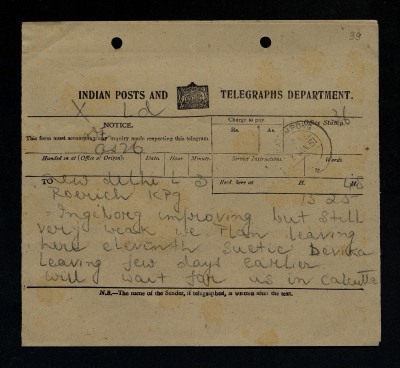 39
INDIAN POSTS AND TELEGRAPHS DEPARTMENT.
X Ld
NOTICE.
This form must accompany any inquiry made respecting this telegram.
Charge to pay.
Rs. As.
Office Stamp.
26
AS26
Handed in at (Office of Origin). Date. Hour. Minute. Service Instructions. Words.
New Delhi L 3
TO
Recd here at H. M.
Roerich KPg 13 25
Ingeborg improving but still
very weak we plan leaving
here eleventh Svetic Devika
leaving few days earlier
will wait for us in Calcutta
N.B.—The name of the Sender, if telegraphed, is written after the text.